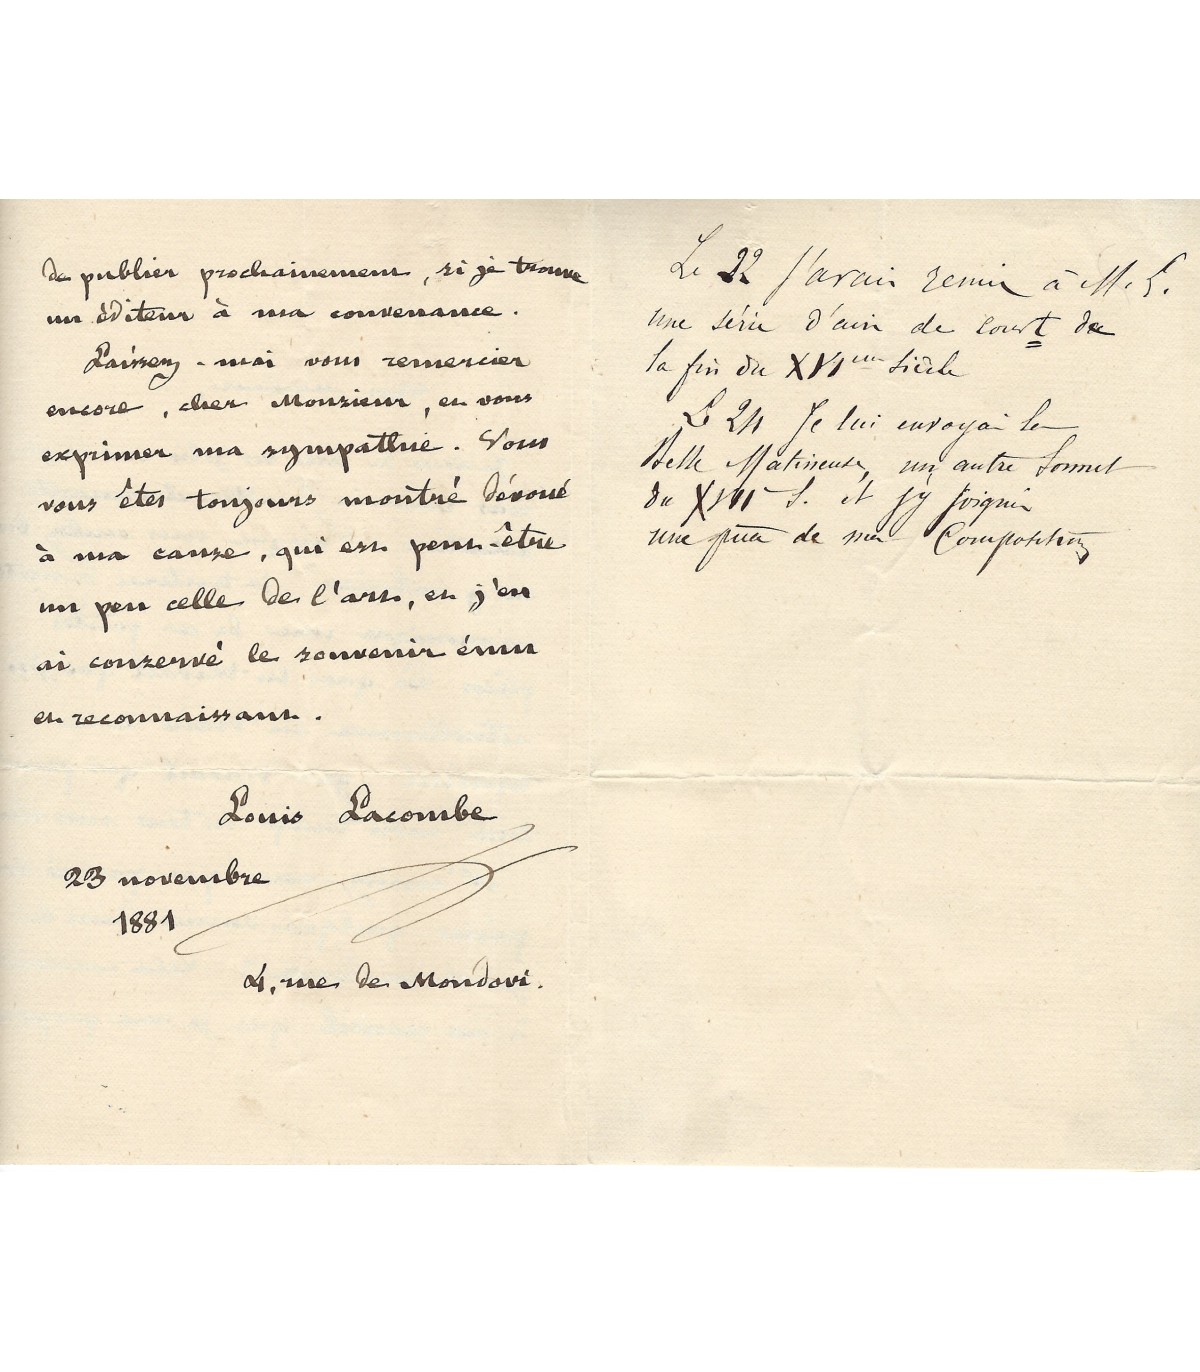 de publier prochainement, si je trouve
un éditeur à ma convenance.
Laissez-moi vous remercier
encore, cher Monsieur, et vous
exprimer ma sympathie. Vous
vous êtes toujours montré dévoué
à ma cause, qui est peut-être
un peu celle de l'art, et j'en
ai conservé le souvenir ému
et reconnaissant.
Louis Lacombe
23 novembre
1881
4, rue de Mondovi.
Le 22 j'avais remis à M. L.
une série d'airs de Court de
la fin du XVIeme Siècle
Le 24 Je lui envoyai la
Belle Matineuse, un autre Sonnet
du XVII S. et j'y joignis
une de ma Composition